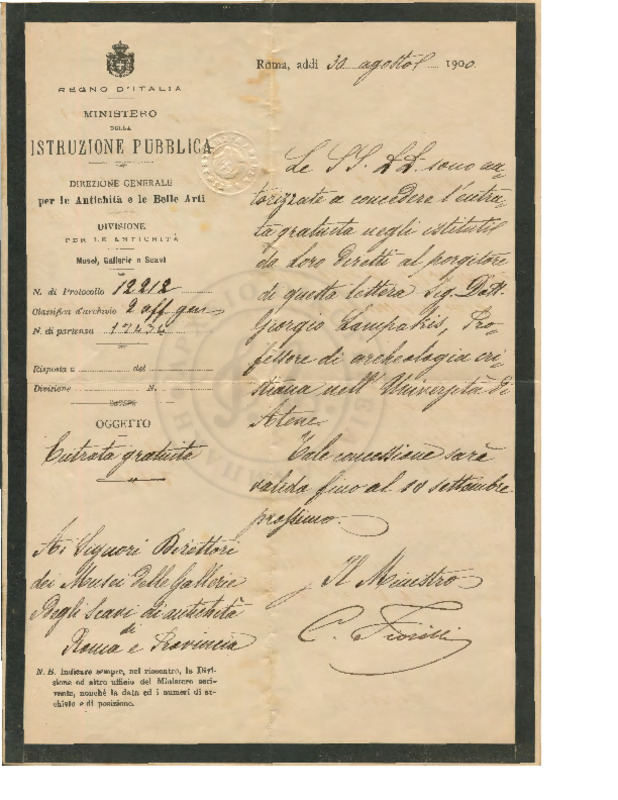 REGNO D'ITALIA
MINISTERO
DELLA
ISTRUZIONE PUBBLICA
DIREZIONE GENERALE
per le Antichità e le Belle Arti
DIVISIONE
PER LE ANTICHITÀ
Musei, Gallerie e Scavi
N. di Protocollo 12212
Classifica d'archivio 2 aff gen
N. di partenza 17434
Risposta a del
Divisione N.
OGGETTO
Entrata gratuita
Ai Signori Direttori
dei Musei delle Gallerie
Degli Scavi di antichità
di
Roma e Provincia
N. B. Indicare sempre, nel riscontro, la Divi-
sione od altro ufficio del Ministero scri-
vente, nonchè la data ed i numeri di ar-
chivio e di posizione.
Roma, addì 30 agosto 1900.
Le SS. LL. sono au-
torizzate a concedere l'entra-
ta gratuita negli istituti
da Loro diretti al porgitore
di questa lettera Sig. Dott.
Giorgio Lampakis, Pro-
fessore di archeologia cri-
stiana nell' Università di
Atene.
Tale concessione sarà
valida fino al 10 settembre
prossimo.
Il Ministro
C. Fiorilli